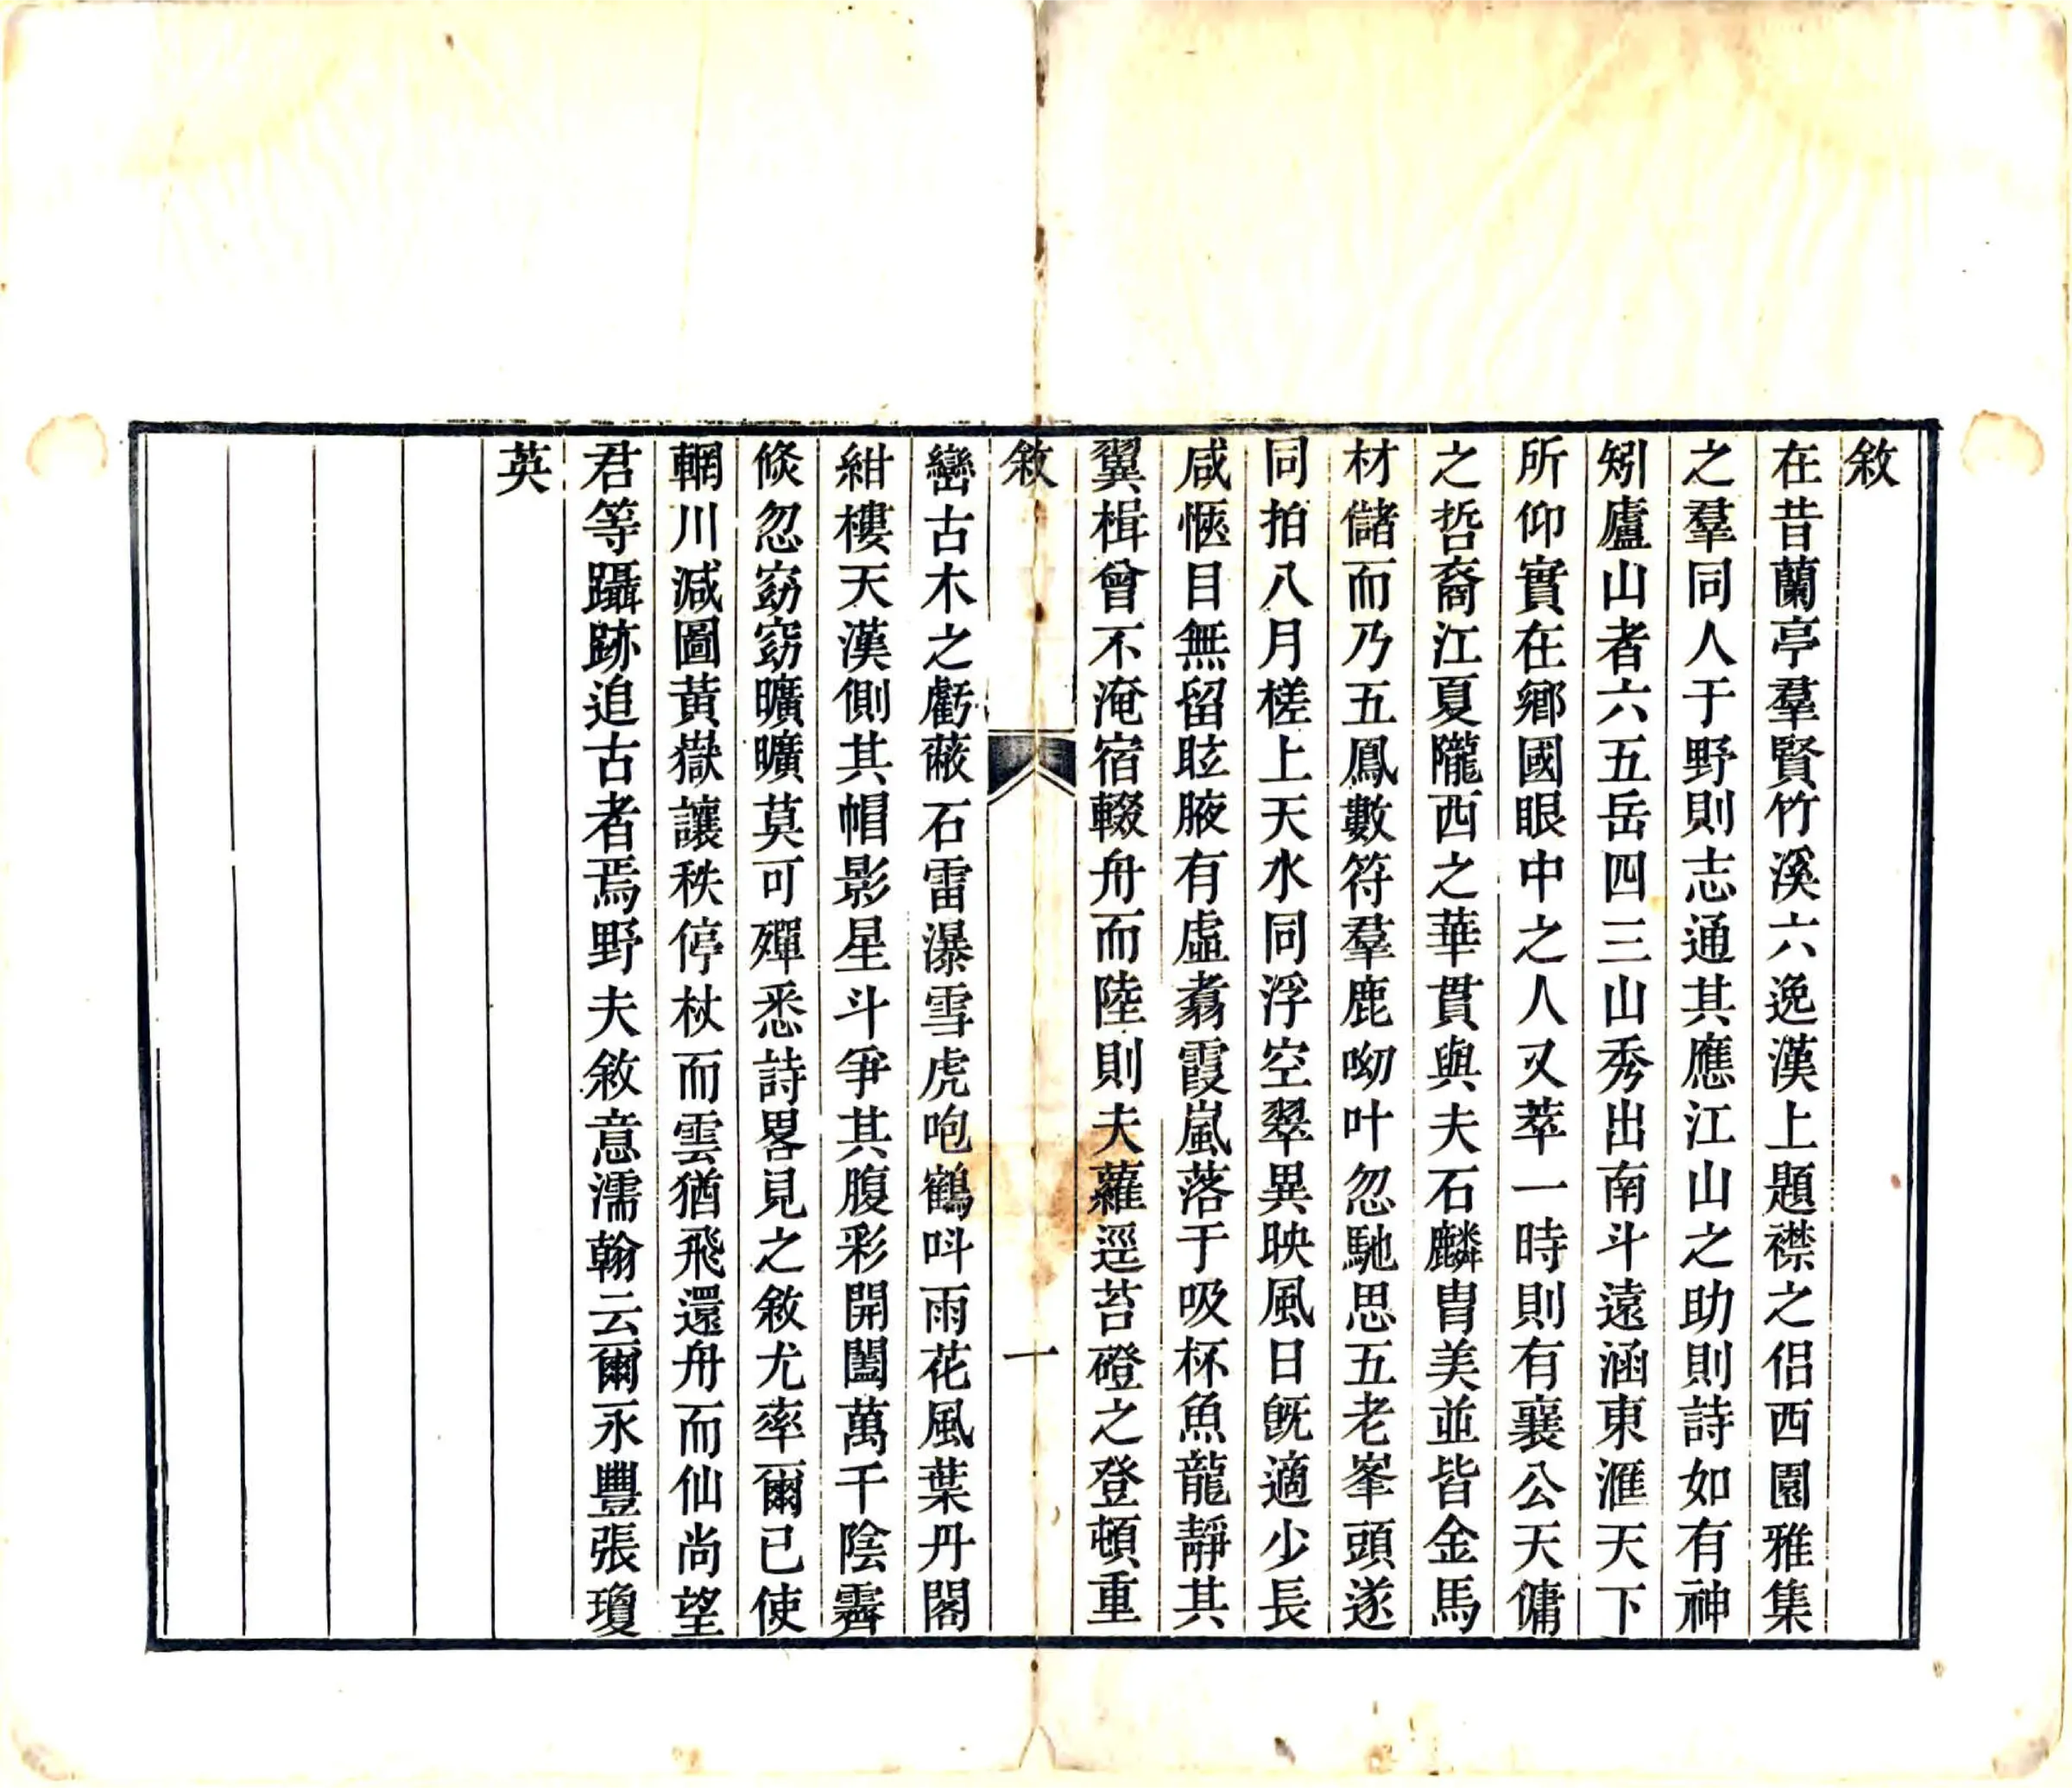 敘
在昔蘭亭羣賢竹溪六逸漢上題襟之侶西園雅集
之羣同人于野則志通其應江山之助則詩如有神
矧廬山者六五岳四三山秀出南斗遠涵東滙天下
所仰實在鄉國眼中之人又萃一時則有襄公天傭
之哲裔江夏隴西之華貫與夫石麟胄美並皆金馬
材儲而乃五鳳數符羣鹿呦叶忽馳思五老峯頭遂
同拍八月槎上天水同浮空翠異映風日旣適少長
咸愜目無留眩腋有虛翥霞嵐落于吸杯魚龍靜其
翼楫曾不淹宿輟舟而陸則夫蘿逕苔磴之登頓重
敘
一
巒古木之虧蔽石雷瀑雪虎咆鶴呌雨花風葉丹閣
紺樓天漢側其帽影星斗爭其腹彩開闔萬千陰霽
倐忽窈窈曠曠莫可殫悉詩畧見之敘尤率爾已使
輞川減圖黃嶽讓秩停杖而雲猶飛還舟而仙尚望
君等躡跡追古者焉野夫敘意濡翰云爾永豐張瓊
英